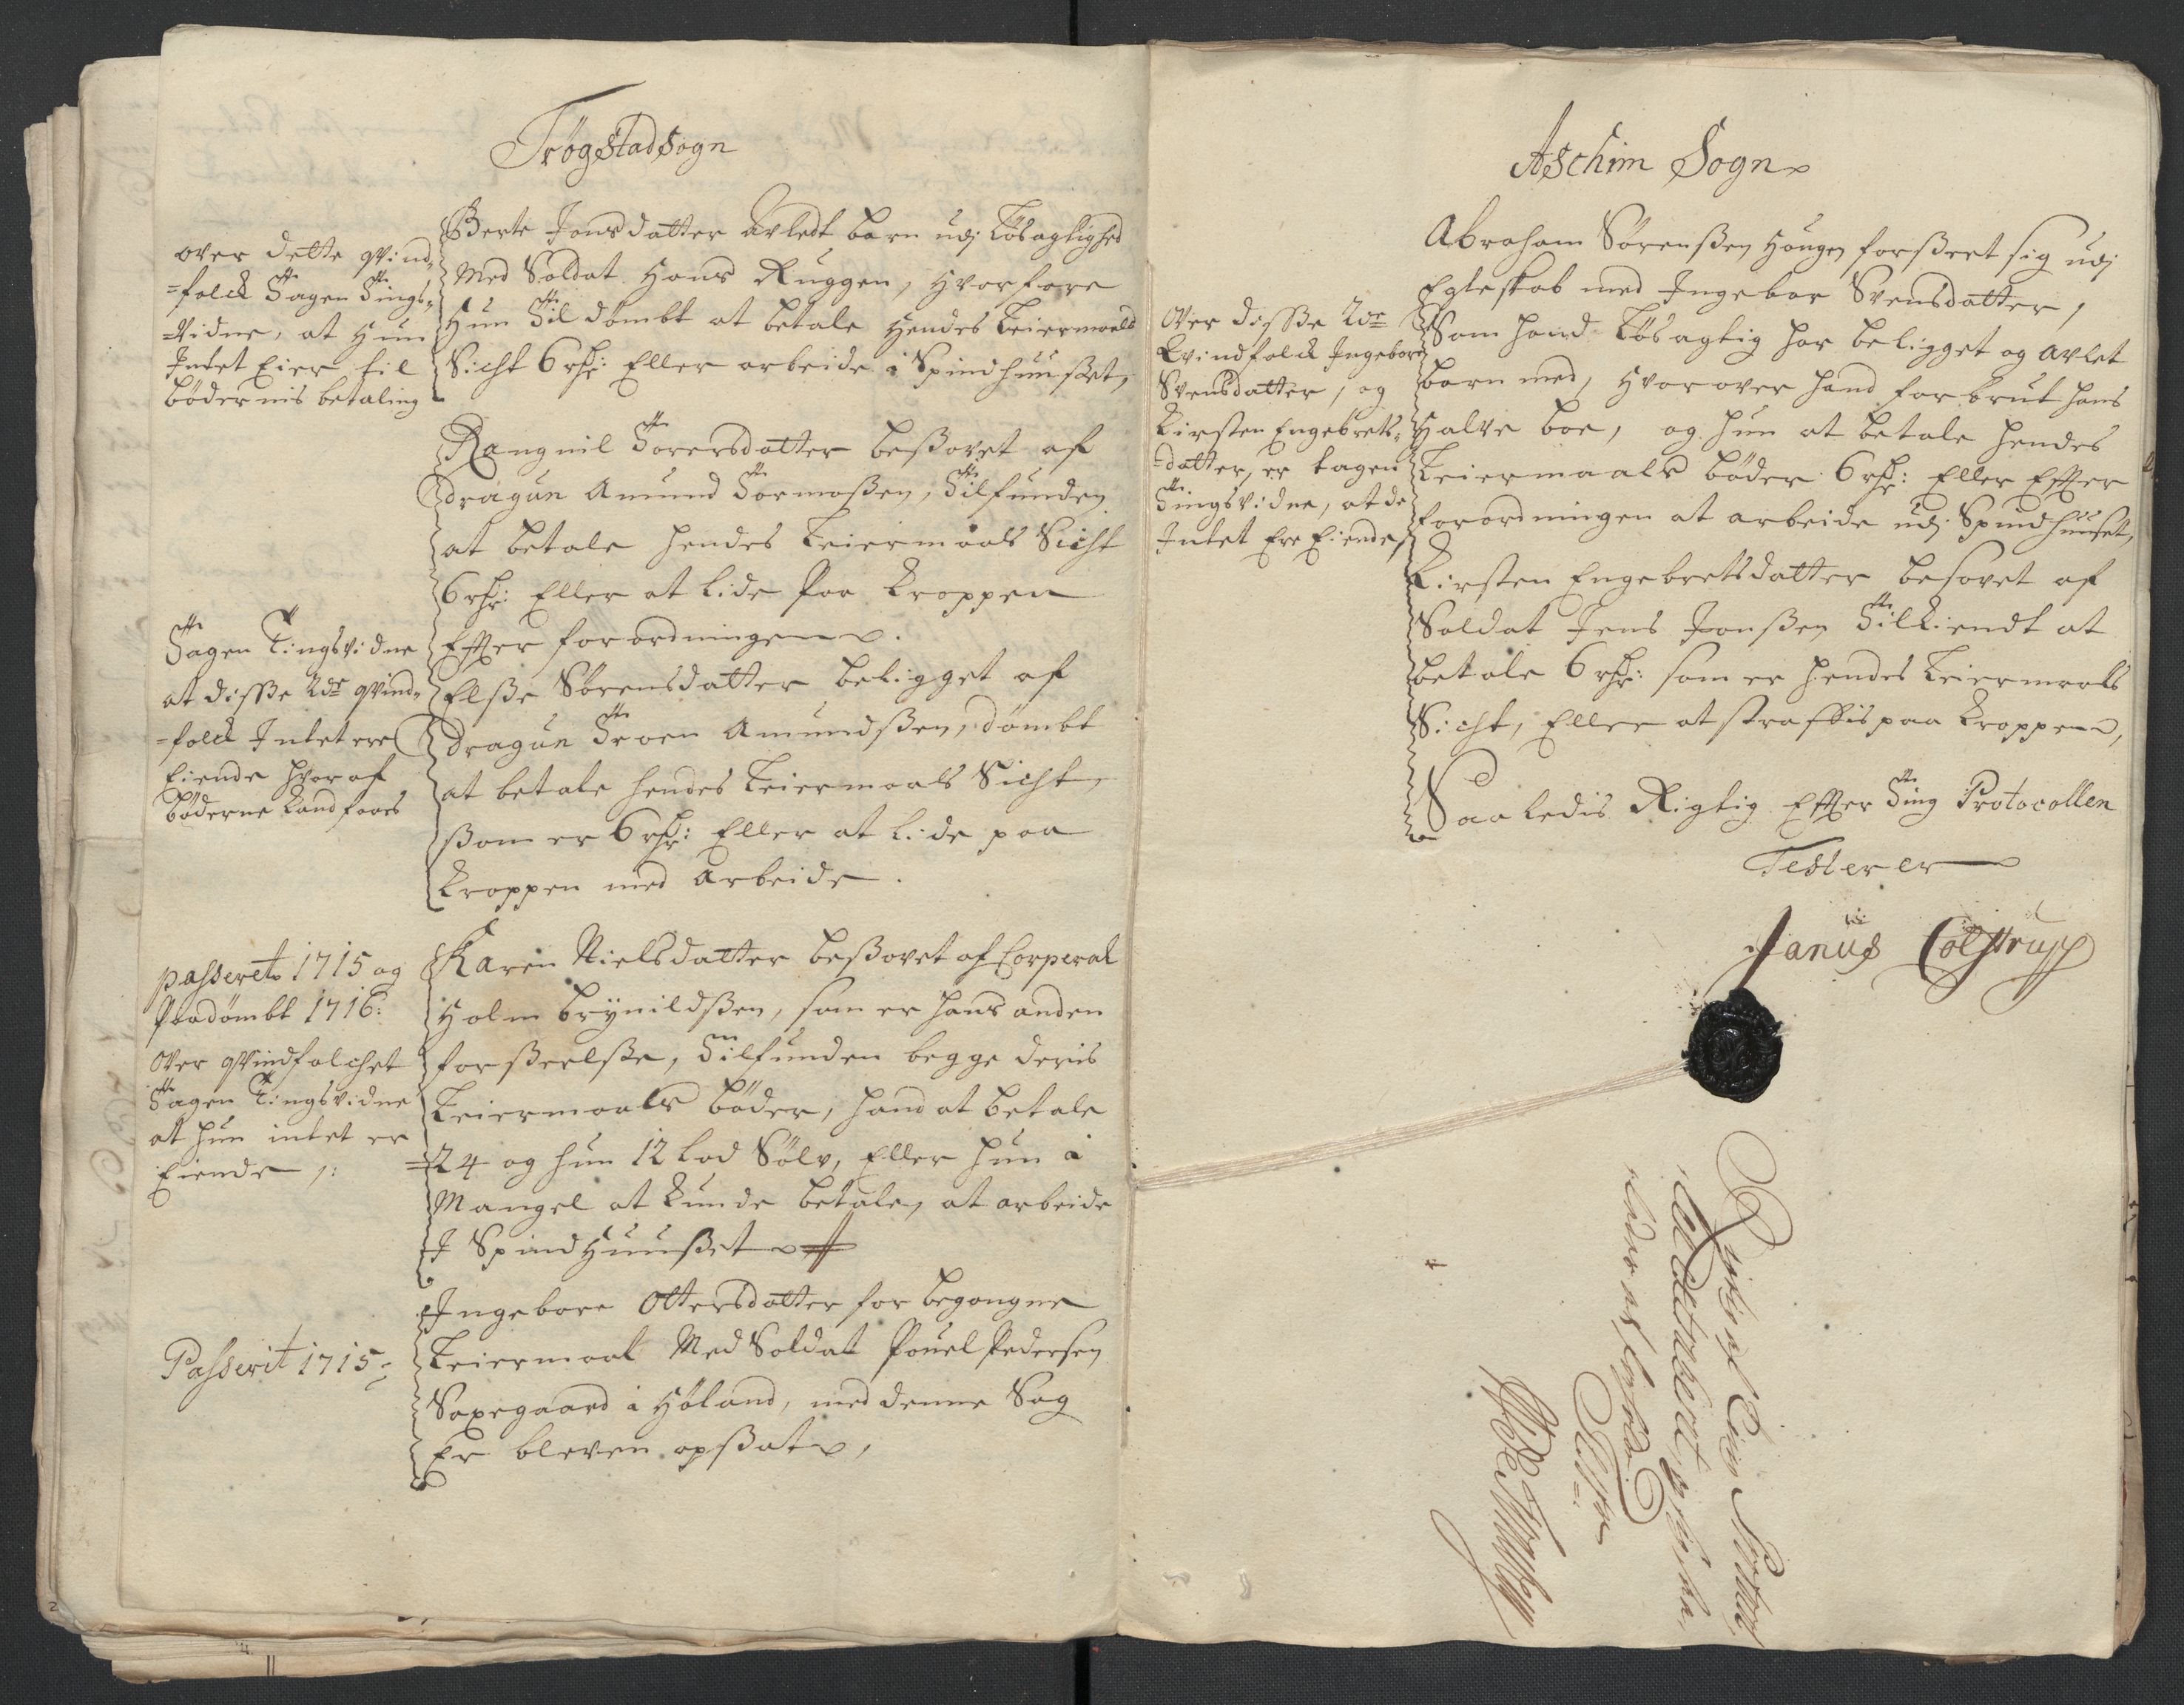 Trögstad Sogn
over dette qvind-
=folck Tagen Tings-
=Vidne, at Hun
Intet Eier til
bödernis betaling
Berte Jonsdatter Avledt barn udj Lösagtighed
Med Soldat Hans Ruggen, Hvorfore
Hun Til dömbt at betale Hendes Leiermaals
Sicht 6 rdr: Eller arbeide i Spindhuuset,
Rangnil Torersdatter besovet af
dragun Amund Tormoßen, Tilfunden
at betale hendes Leiermaals Sicht
6 rdr: Eller at lide paa Kroppen
Efter forordningen.
Tagen Tingsvidne
at disse 2de qvind-
=folck Intet ere
Eiende hvoraf
böderne kand faaes
Elße Sörensdatter beligget af
dragun Troen Amundßen, dömbt
at betale hendes Leiermaals Sicht,
ßom er 6 rdr: Eller at lide paa
Kroppen med Arbeide.
passeret 1715 og
Paadömbt 1716:
Over qvindfolchet
Tagen Tingsvidne
at hun intet er
Eiende /:
Karen Nielsdatter beßovet af Corperal
Holm Brynildßen, som er hans anden
forßeelße, Tilfunden begge deris
Leiermaals böder, hand at betale
=24 og hun 12 Lod Sölv, Eller hun i
Mangel at kunde betale, at arbeide
I Spindhuußet
Passerit 1715:
Ingebore Ottersdatter for begangne
Leiermaal Med Soldat Pouel Pedersen
Saxegaard i Höland, med denne Sag
Er bleven opßat,
Aschim Sogn
Over disße 2de
Qvindfolck Ingebore
Svensdatter, og
Kirsten Engebrets-
=datter, er tagen
Tingsvidne, at de
Intet Ere Eiende,
Abraham Sörenßen Hougen forßeet sig udj
Egteskab med Ingebor Svensdatter,
Som hand Lösagtig har beligget og Avlet
barn med, Hvorover hand forbrut hans
Halve boe, og hun at betale hendes
Leiermaals böder 6 rdr: Eller Efter
forordningen at arbeide udj Spindhuuset,
Kirsten Engebretsdatter besovet af
Soldat Jens Jonßen Tilkiendt at
betale 6 rdr: som er hendes Leiermaals
Sicht, Eller at straffis paa Kroppen,
Saaledis Rigtig Efter Ting Protocollen
Testerer
Janus Colstrup